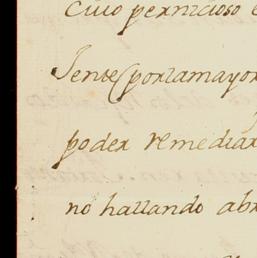 Civo pernicioso e
Jente (porlamayor
poder remediar
no hallando abr